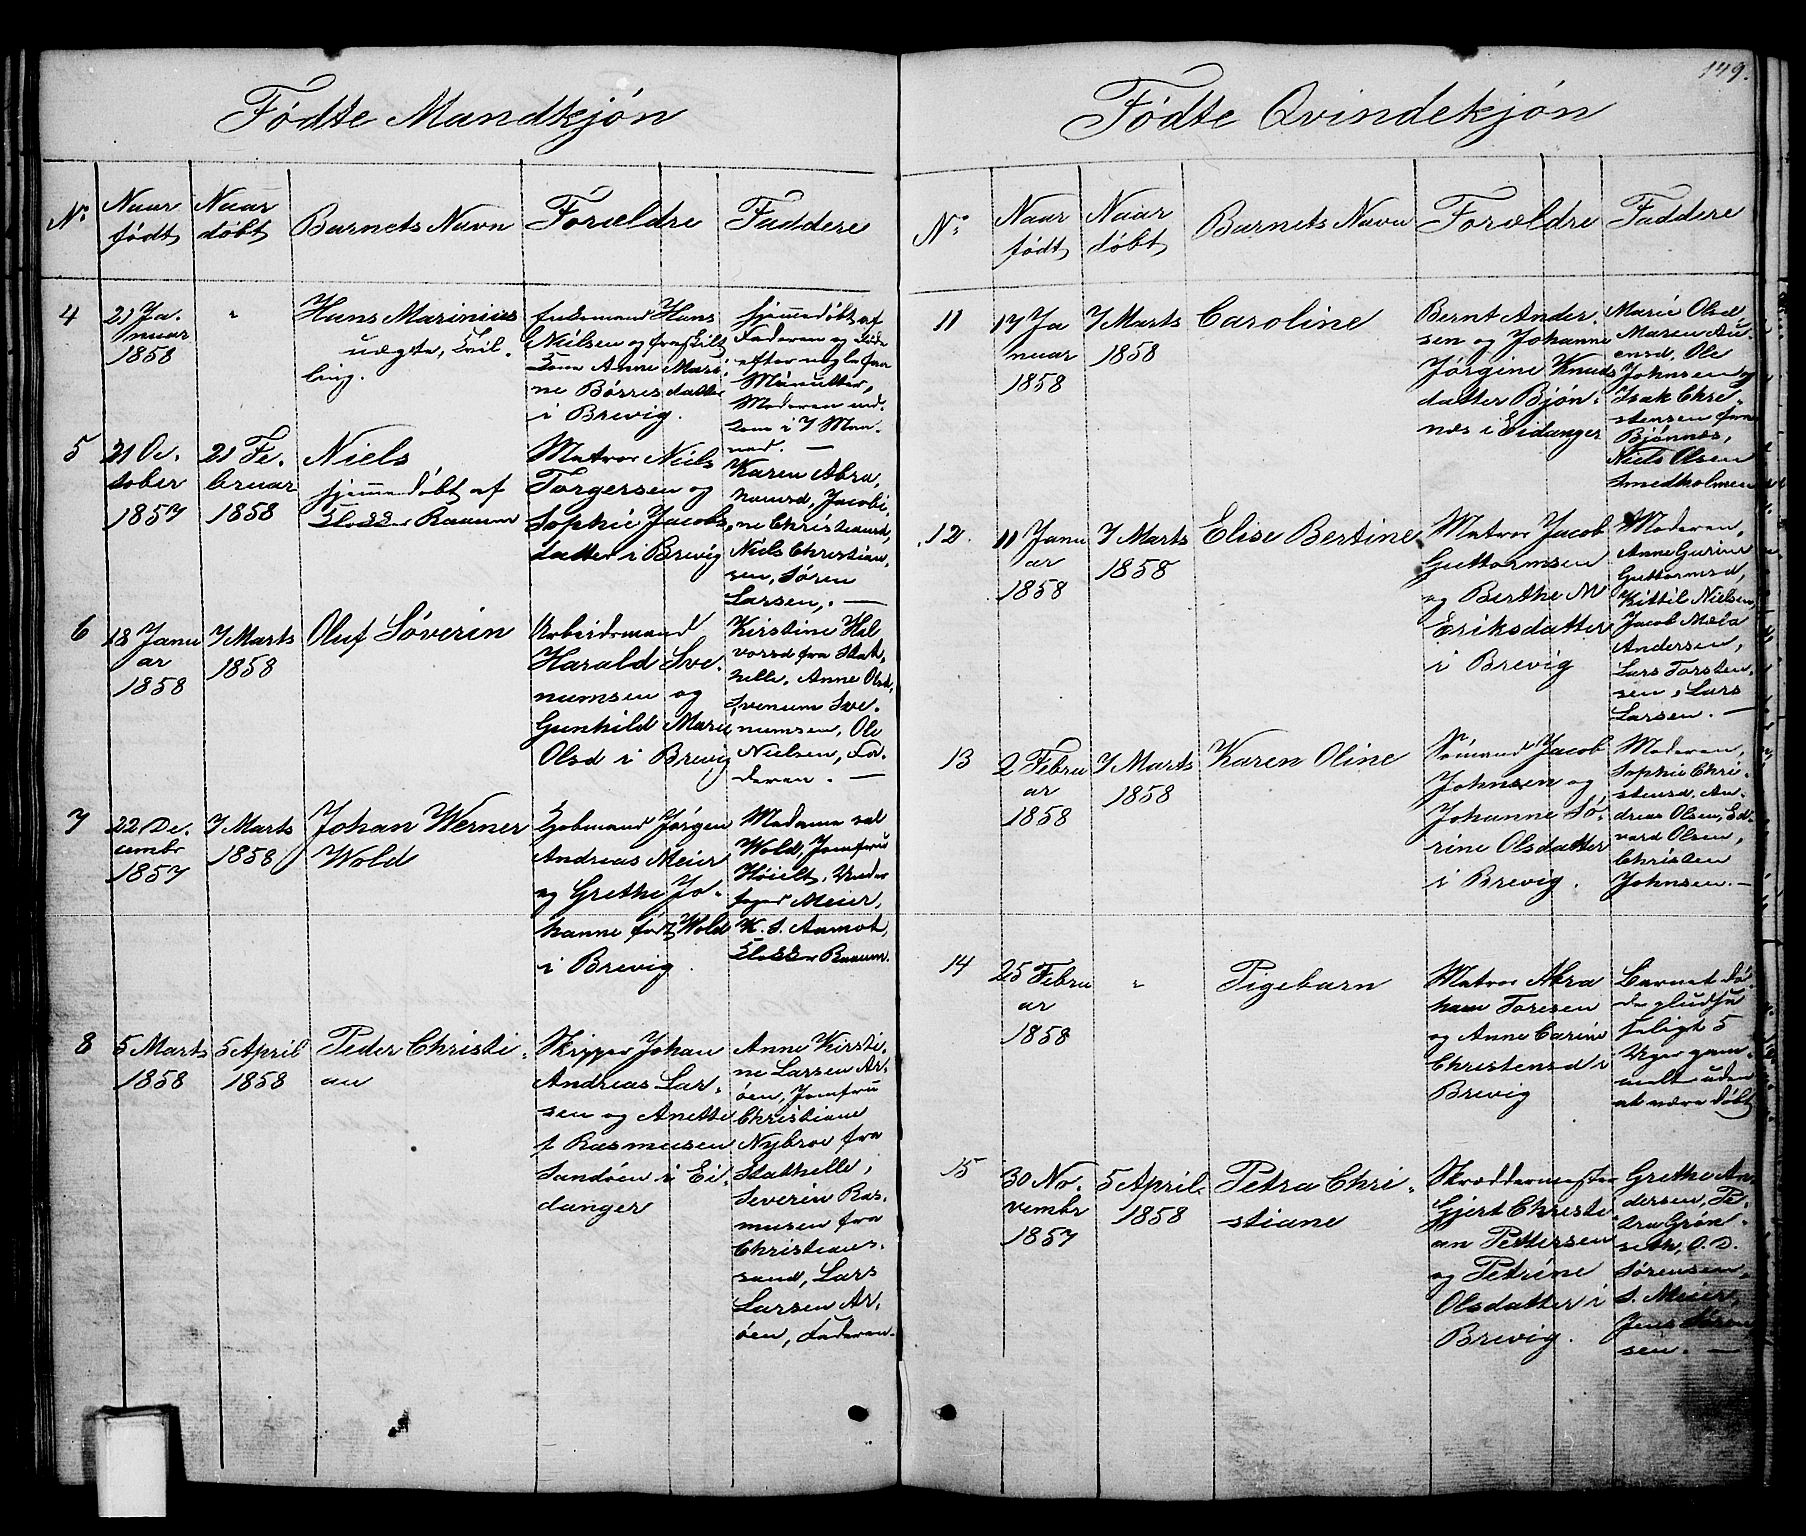 149.
Fødte Mandkjøn
No
Naar født
Naar døbt
Barnets Navn
Forældre
Faddere
4
21 Ja-
nuar
1858
"
Hans Marinius
uægte, Tvil-
ling.
Hans
Nielsen og fraskilt
Kone Anne Mari-
ne Børresdatter
i Brevig.
hjemmedøbt af
Faderen og
efter
Moderen
i 7 Maa-
ned. —
5
21 Oc-
tober
1857
21 Fe-
bruar
1858
Niels
hjemmedøbt af
Klokker Raaum
Matros Niels
Torgersen og
Sophie Jacobs
datter i Brevig
Karen Abra
hamsd, Jacobi-
ne Christiansd,
Niels Christian-
sen, Søren
Larsen, —
6
18 Janu
ar
1858
7 Marts
1858
Oluf Søverin
Arbeidsmand
Harald Sve-
numsen og
Gunhild Marie
Olsd i Brevig
Kirstine Hal
vorsd fra Stat-
helle, Anne Olsd,
Svenum Sve-
numsen, Ole
Nielsen, Fa-
deren. —
7
22 De-
cembr
1857
7 Marts
1858
Johan Werner
Wold
Kjøbmand Jørgen
Andreas Meier
og Grethe Jo-
hanne født Wold
i Brevig.
Madame sal
Wold, Jomfru
Høielt, Under
foged Meier,
K. S. Aamot,
Klokker Raaum.
8
5 Marts
1858
5 April
1858
Peder Christi-
an
Skipper Johan
Andreas Lar-
sen og Anette
f Rasmussen
Sandøen i Ei-
danger
Anne Kirsti-
ne Larsen Ar-
øen, Jomfru
Christiane
Nybroe fra
Stathelle,
Severin Ras-
musen fra
Christians-
sand, Lars
Larsen Ar-
øen, Faderen.
Fødte Qvindekjøn
No
Naar født
Naar døbt
Barnets Navn
Forældre
Faddere
11
17 Ja
nuar
1858
7 Marts
1858
Caroline
Bernt Ander-
sen og Johanne
Jørgine Knuds
datter Bjøn-
nes i Eidanger
Marie Olsd,
Maren Au-
ensd, Ole
Johnsen og
Isak Chri-
stensen fra
Bjønnes,
Niels Olsen
Smedholmen
12.
11 Janu
ar
1858
7 Marts
1858
Elise Bertine
Matros Jacob
Guttormsen
og Berthe M
Eriksdatter
i Brevig
Moderen,
Anne Gurine
Guttormsd,
Kittil Nielsen,
Jacob Mæla
Andersen,
Lars Torsten-
sen, Lars
Larsen. —
13
2 Febru
ar
1858
7 Marts
1858
Karen Oline
Sømand Jacob
Johnsen og
Johanne Sø-
rine Olsdatter
i Brevig.
Moderen,
Sophie Chri-
stensd, An-
dreas Olsen, Ed-
vard Olsen,
Christen
Johnsen. —
14
25 Febru
ar
1858
"
Pigebarn
Matros Abra
ham Toresen
og Anne Carine
Christensd i
Brevig
Barnet dø-
de pludse
keligt 5
Uger gam-
melt uden
at være døbt
15
30 No-
vembr
1857
5 April
1858
Petra Chri-
stiane
Skræddermester
Gjert Christi
an Pettersen
og Petrine
Olsdatter i
Brevig.
Grethe An-
dersen, Pe-
tra Grøn-
seth, O. D.
Sørensen,
S. Meier,
Jens Søren-
sen. —